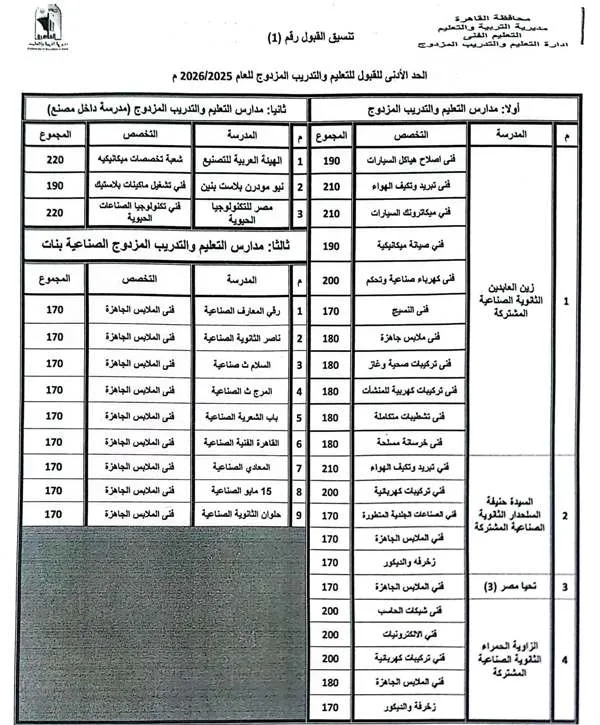 محافظة القاهرة
مديرية التربية والتعليم
التعليم الفنى
ادارة التعليم والتدريب المزدوج
تنسيق القبول رقم (1)
الحد الأدنى للقبول للتعليم والتدريب المزدوج للعام 2026/2025 م
أولا: مدارس التعليم والتدريب المزدوج
م المدرسة التخصص المجموع
1 زين العابدين الثانوية الصناعية المشتركة
فنى اصلاح هياكل السيارات 190
فني تبريد وتكيف الهواء 210
فني ميكاترونك السيارات 210
فني صيانة ميكانيكية 190
فني كهرباء صناعية وتحكم 200
فنى النسيج 170
فنى ملابس جاهزة 180
فنى تركيبات صحية وغاز 180
فنى تركيبات كهربية للمنشأت 180
فنى تشطيبات متكاملة 180
فنى خرسانة مسلحة 180
2 السيدة حنيفة السلحدار الثانوية الصناعية المشتركة
فني تبريد وتكيف الهواء 210
فني تركيبات كهربائية 200
فني الصناعات الجلدية المتطورة 170
فني الملابس الجاهزة 170
زخرفه والديكور 170
3 تحيا مصر (3) فني الملابس الجاهزة 170
4 الزاوية الحمراء الثانوية الصناعية المشتركة
فنى شبكات الحاسب 200
فني الالكترونيات 200
فني تركيبات كهربائية 200
فني الملابس الجاهزة 180
زخرفة والديكور 170
ثانيا: مدارس التعليم والتدريب المزدوج (مدرسة داخل مصنع)
م المدرسة التخصص المجموع
1 الهيئة العربية للتصنيع شعبة تخصصات ميكانيكيه 220
2 نيو مودرن بلاست بنين فني تشغيل ماكينات بلاستيك 190
3 مصر للتكنولوجيا الحيوية فني تكنولوجيا الصناعات الحيوية 220
ثالثا: مدارس التعليم والتدريب المزدوج الصناعية بنات
م المدرسة التخصص المجموع
1 رقي المعارف الصناعية فنى الملابس الجاهزة 170
2 ناصر الثانوية الصناعية فنى الملابس الجاهزة 170
3 السلام ث صناعية فنى الملابس الجاهزة 170
4 المرج ث الصناعية فنى الملابس الجاهزة 170
5 باب الشعرية الصناعية فنى الملابس الجاهزة 170
6 القاهرة الفنية الصناعية فنى الملابس الجاهزة 170
7 المعادي الصناعية فنى الملابس الجاهزة 170
8 15 مايو الصناعية فنى الملابس الجاهزة 170
9 حلوان الثانوية الصناعية فنى الملابس الجاهزة 170